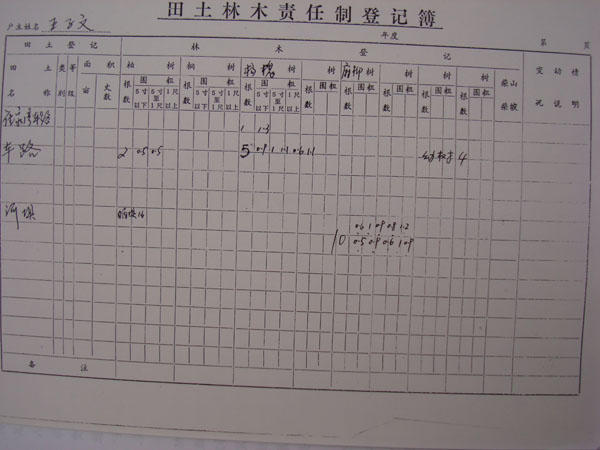 田土林木责任制登记簿
户主姓名 王正文
年度
第 页
田土登记 林木登记 变动情况说明
田土名称 类别 等级 面积 柏树 桐树 杨槐树 麻柳树 树 树 柴山柴坡
亩 丈数 根数 围粗 根数 围粗 根数 围粗 根数 围粗 根数 围粗 根数 围粗
5寸以下 5寸至1尺 1尺以上 5寸以下 5寸至1尺 1尺以上 5寸以下 5寸至1尺 1尺以上
1 1.3
车路 2 0.5 0.5 5 0.9 1 1.1 0.6 1.1 4
河坝
0.6 1 0.9 0.8 1.2
10 0.5 0.9 0.6 1 0.9
备注